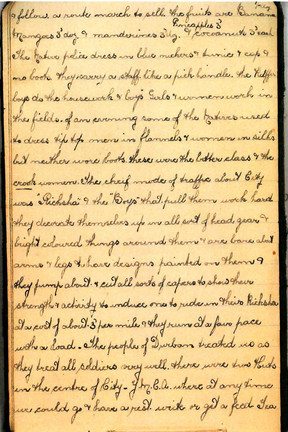 & follows a route march to sell the fruits are Banana
Pineapples 3
Mangoes 3 doz & manderines 3 dz, & cocoanuts 3 each
The Native police dress in blue nickers & tunic & cap &
no boots they carry a staff like a pick handle. the Kaffir
boys do the housework & boys Gals & women work in
the fields. of an evening some of the Natives used
to dress tip top men in flannels & women in silks
but neither wore boots these were the better class & the
crook women. The cheif mode of traffic about City
was "Rickshas" & the Boys that pull them work hard
they decorate themselves up in all sort of head gear &
bright coloured things around them & are bare about
arms & legs & have designs painted on them &
they jump about & cut all sorts of capers to show their
strength & activity to induce one to ride in their Ricksha
at a cost of about 3d per mile & they run at a fair pace
with a load. The people of Durban treated us as
they treat all soldiers very well. there were two Huts
in the centre of City - Y.M.C.A. where at any time
we could go & have a rest. write or get a feed Tea